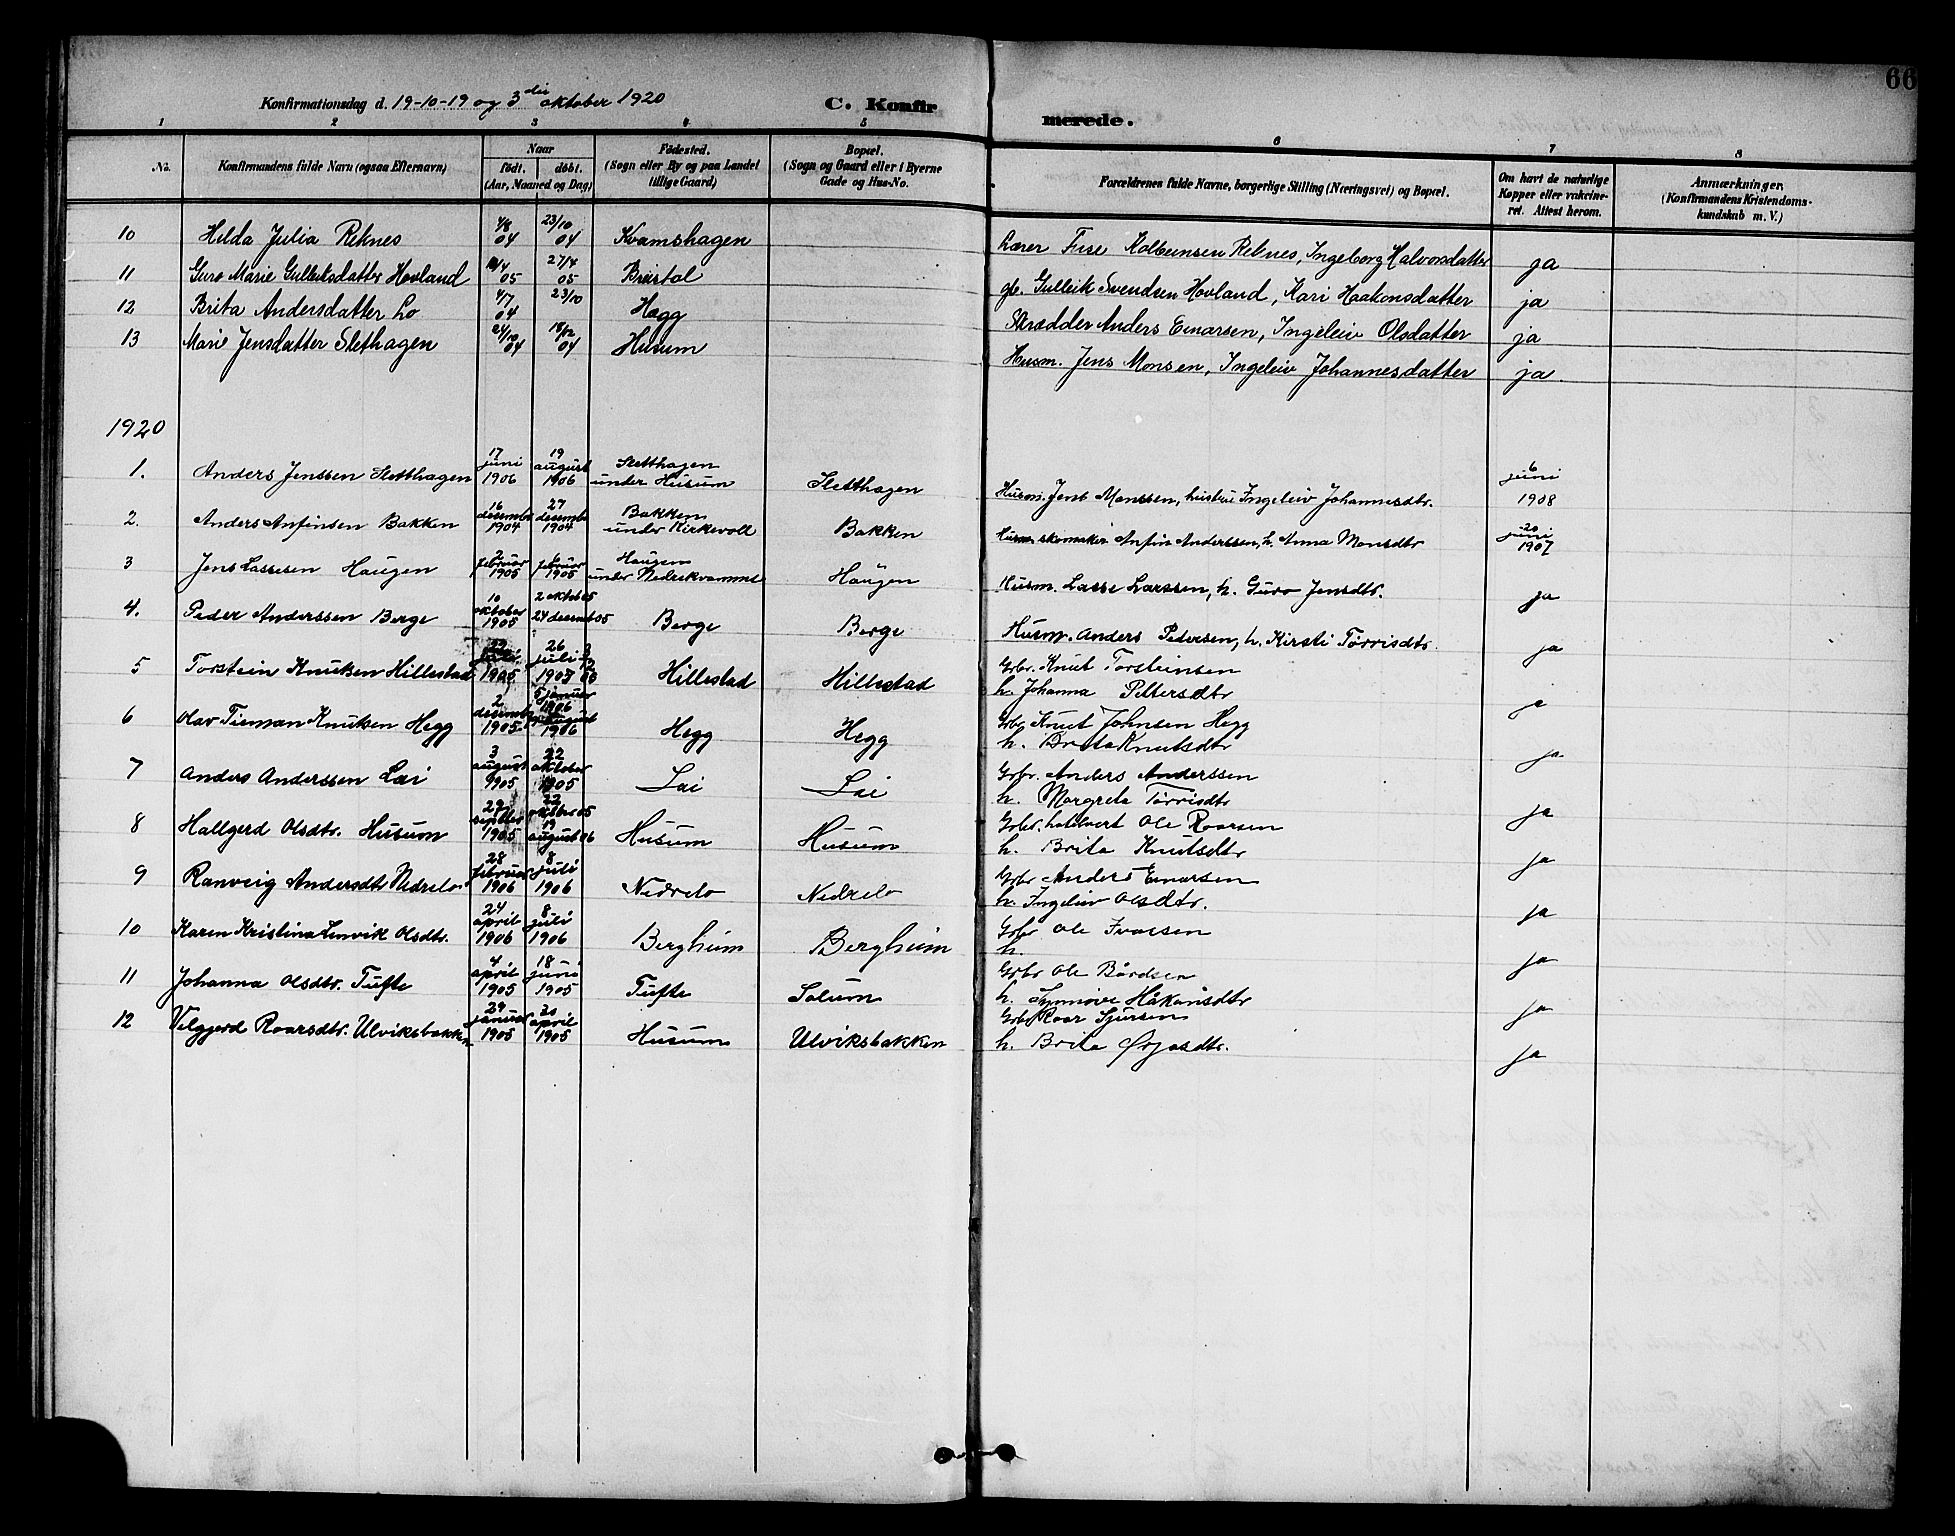 66
Konfirmationsdag d. 19-10-19 og 3die oktober 1920
C. Konfirmerede.
1 2 3 4 5 6 7 8
No.
Konfirmandens fulde Navn (ogsaa Efternavn)
Naar
født. døbt.
(Aar, Maaned og Dag)
Fødested.
(Sogn eller By og paa Landet
tillige Gaard)
Bopæl.
(Sogn og Gaard eller i Byerne
Gade og Hus-No.
Forældrenes fulde Navne, borgerlige Stilling (Næringsvei) og Bopæl.
Om havt de naturlige
Kopper eller vakcine-
ret. Attest herom.
Anmærkninger.
(Konfirmandens Kristendoms-
kundskab m. V.)
10 Hilda Julia Reknes 4/8 04 23/10 04 Kvamshagen Lærer Kolbeinsen Reknes, Ingeborg Halvorsdatter ja
11 Guro Marie Gulleiksdatter Hovland /4 05 27/4 05 Bristol gb. Gulleik Svendsen Hovland, Kari Haakonsdatter ja
12 Brita Andersdatter Lo 4/7 04 23/10 Hægg Skrædder Anders Einarsen, Ingeleiv Olsdatter ja
13 Marie Jensdatter Slethagen 24/10 04 18/12 04 Husum Husm. Jens Monsen, Ingeleiv Johannesdatter ja.
1920
1. Anders Jenssen Sletthagen 17 juni 1906 19 august 1906 Sletthagen under Husum Sletthagen Husm. Jens Monssen, hustru Ingeleiv Johannesdtr. 6 juni 1908
2. Anders Anfinsen Bakken 16 decembr 1904 27 decembr 1904 Bakken under Kirkevoll Bakken Husm. skomaker Anfin Anderssen, h. Anna Monsdtr 20 juni 1907
3 Jens Lassesen Haugen 2 februar 1905 6 februar 1905 Haugen under Nedrekvamme Haugen Husm. Lasse Larssen, h. Guro Jensdtr. ja
4. Peder Anderssen Berge 10 oktober 1905 2 oktob 05 24 decemb 05 Berge Berge Husm. Anders Pedersen, h. Kirsti Tørrisdtr ja
5 Torstein Knutsen Hillestad 1905 26 juli Hillestad Hillestad Grbr. Knut Torsteinsen
h. Johanna Pettersdtr ja
6 Olav Tieman Knutsen Hegg 2 decembr 1905 5 januar 1906 august 1906 Hegg Hegg Grbr Knut Johnsen Hegg
h. Brita Knutsdtr ja
7 Anders Anderssen Lai 3 august 1905 22 oktober 1905 Lai Lai Grbr. Anders Anderssen
h. Margreta Tørrisdtr ja
8 Hallgerd Olsdtr. Husum 29 septber 1905 22 oktber 05 19 august 06 Husum Husum Grbr. hotelvert Ole Roarsen
h. Brita Knutsdtr ja
9 Ranveig Andersdtr Nedrelo 28 februar 1906 8 juli 1906 Nedrelo Nedrelo Grbr Anders Einarsen
h. Ingeleiv Olsdtr. ja
10 Karen Kristina Lenvik Olsdtr. 24 april 1906 8 juli 1906 Bergheim Bergheim Grbr Ole Ivarsen
h. ja
11 Johanna Olsdtr. Tufte 4 april 1905 18 juni 1905 Tufte Solum Grbr Ole Bårdsen
h. Synnøve Håkonsdtr ja
12 Velgjerd Roarsdtr. Ulviksbakken 29 januar 1905 30 april 1905 Husum Ulviksbakken Grbr Roar Sjursen
h. Brita Ørjasdtr. ja